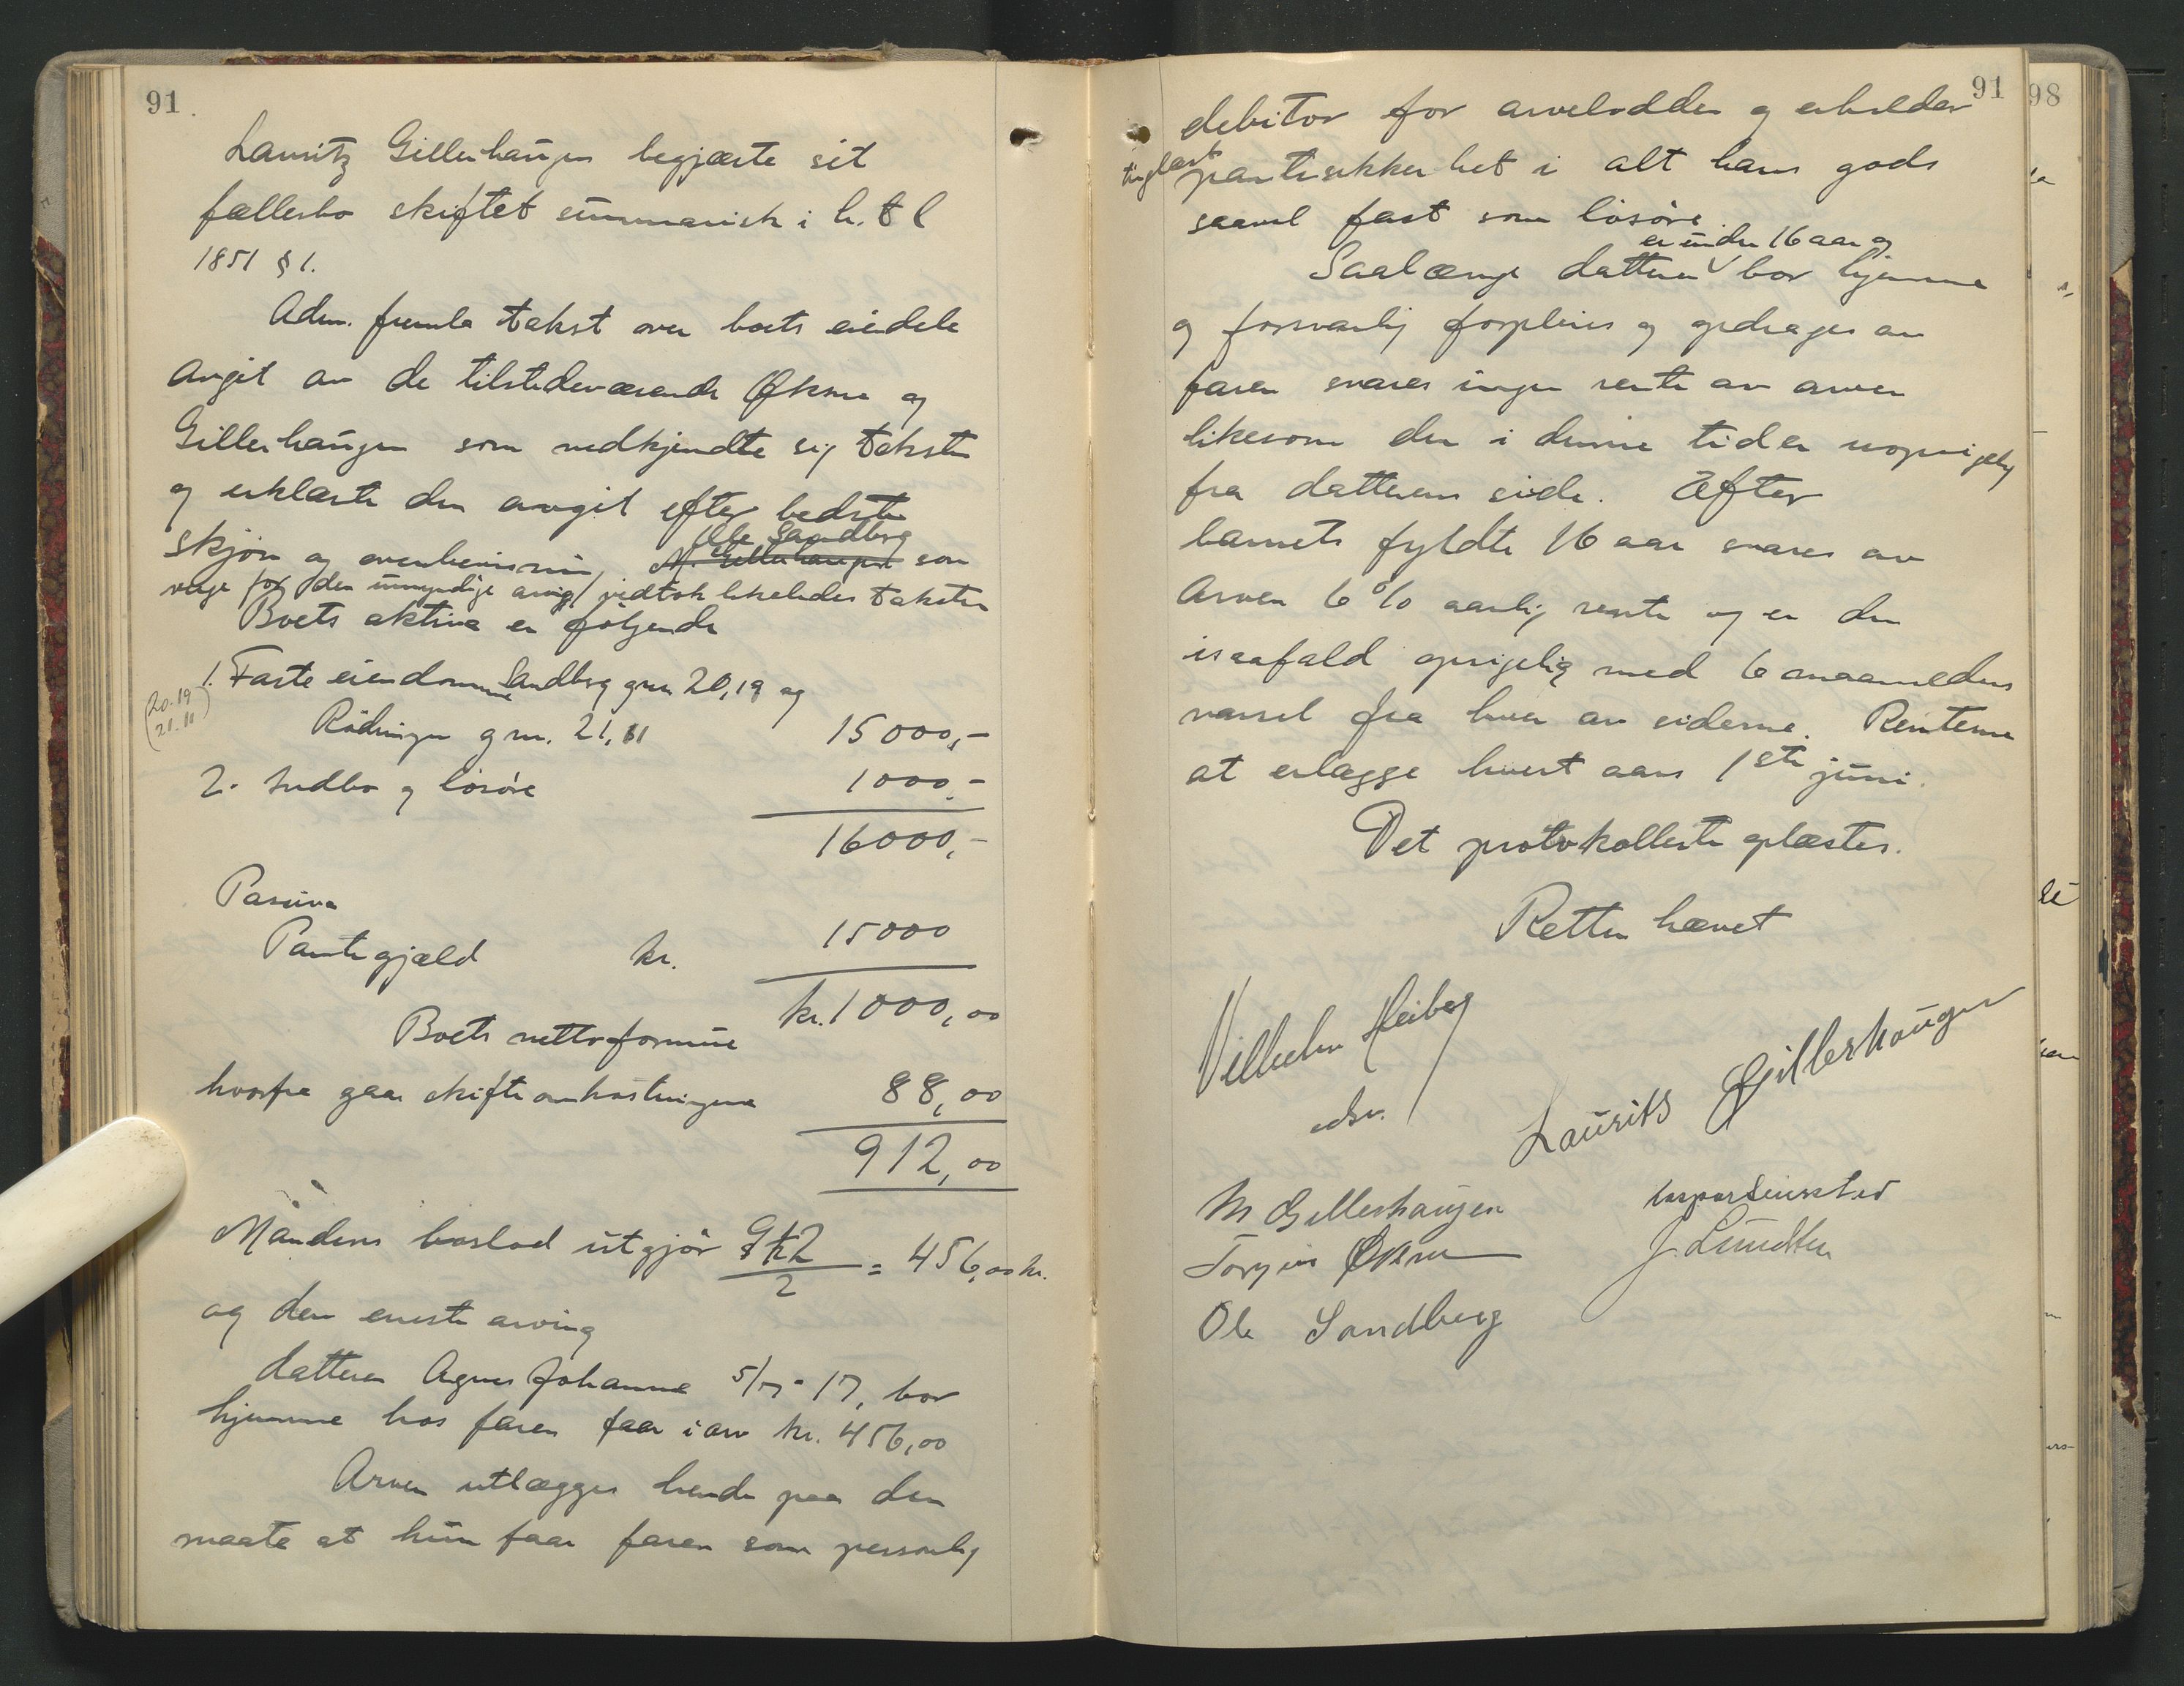 91
Lauritz Gillerhaugen begjærte sit
fællesbo skiftet summarisk i h. t l
1851 § 1.
Adm. fremla takst over boets eiendele
avgit av de tilstedeværende Øksne og
Gillerhaugen som vedkjendte sig taksten
og erklærte den avgit efter bedste
skjøn og overbevisning, Ole Sandberg M. Gillerhaugen som
verge for den umyndige arving vedtok likeledes taksten
Boets aktiva er følgende
1. Faste eiendomme Sandberg gnr. 20,19 og
(20.19
21.11)
Rödningen gnr. 21,11 15000,-
2. Indbo og lösöre 1000,-
16000,-
Passiva
Pantegjæld kr. 15000
Boets nettoformue kr. 1000,00
hvorfra gaar skifteomkostningene 88,00
912,00
Mandens boslod utgjör 912/2 = 456,00 kr.
og den eneste arving
datteren Agnes Johanne 5/7-17, bor
hjemme hos faren faar i arv kr. 456,00
Arven utlægges hende paa den
maate at hun faar faren som personlig
91
98
debitor for arvelodden og erholder
tinglæst pantesikkerhet i alt hans gods
saavel fast som lösöre.
er under 16 aar og
Saalænge datteren bor hjemme
og forsvarlig forpleies og opdrages av
faren svares ingen rente av arven
likesom den i denne tid er uopsigelig
fra datterens side. Efter
barnets fyldte 16 aar svares av
Arven 6% aarlig rente og er den
isaafald opsigelig med 6 maaneders
varsel fra hver av siderne. Renterne
at erlægge hvert aars 1ste juni.
Det protokollerte oplæstes.
Retten hævet
Vilhelm Heiberg
edsv.
Laurits Gjillerhaugen
M Gillerhaugen
Torger Øksne
J. Lundten
Ole Sandberg